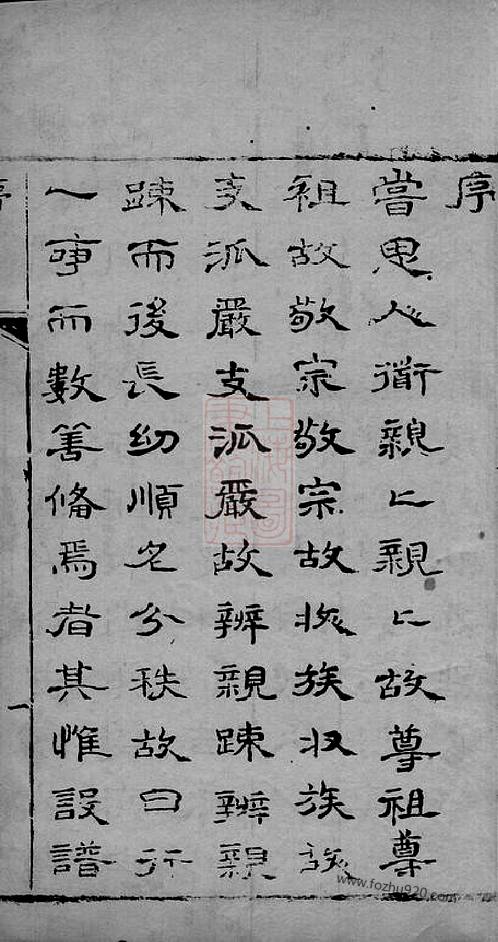 序
嘗思人衜親〻親〻故尊祖尊
祖故敬宗敬宗故收族收族故
支派嚴支派嚴故辨親疎辨親
疎而後長幼順名分秩故曰行
一事而數善備焉者其惟設譜
序
一
www.fozhu920.com